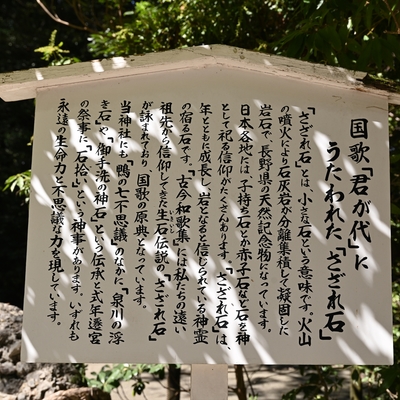 国歌「君が代」に
うたわれた「さざれ石」
「さざれ石」とは、小さな石という意味です。火山
の噴火により石灰岩が分離集積して凝固した
岩石で、長野県の天然記念物になっています。
日本各地には、子持ち石とか赤子石など石を神
として祀る信仰がたくさんあります。「さざれ石」は、
年とともに成長し、岩となると信じられている神霊
の宿る石です。「古今和歌集」には、私たちの遠い
祖先から信仰してきた生石伝説の「さざれ石」
が詠まれており、国歌の原典となっています。
当神社にも「鴨の七不思議」のなかに、「泉川の浮
き石」や、「御手洗の神石」という伝承と式年遷宮
の祭事に、「石拾い」という神事があります。いずれも
永遠の生命力と不思議な力を現しています。